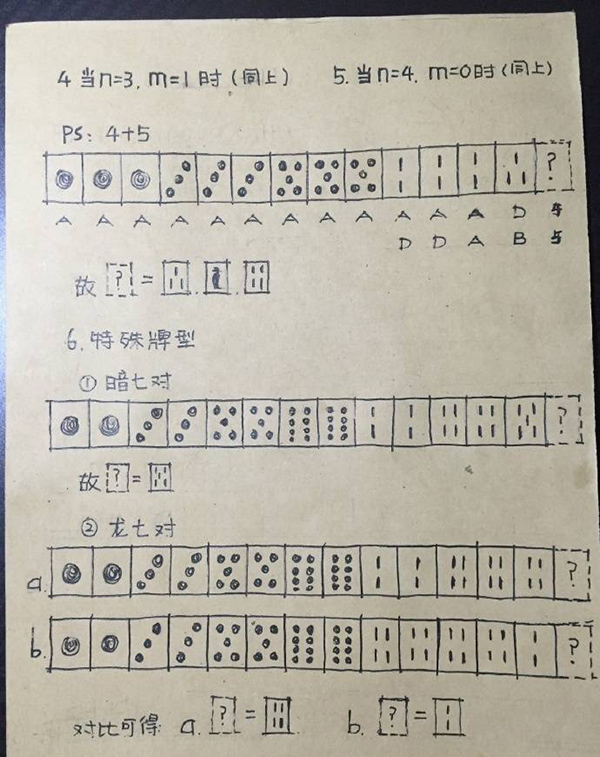 4 当n=3, m=1时(同上) 5. 当n=4, m=0时(同上)
PS: 4+5
?
A A A A A A A A A A A A D 4
D D A B 5
故 ? =
6. 特殊牌型
① 暗七对
?
故 ? =
② 龙七对
a. ?
b. ?
对比可得 a. ? = b. ? =